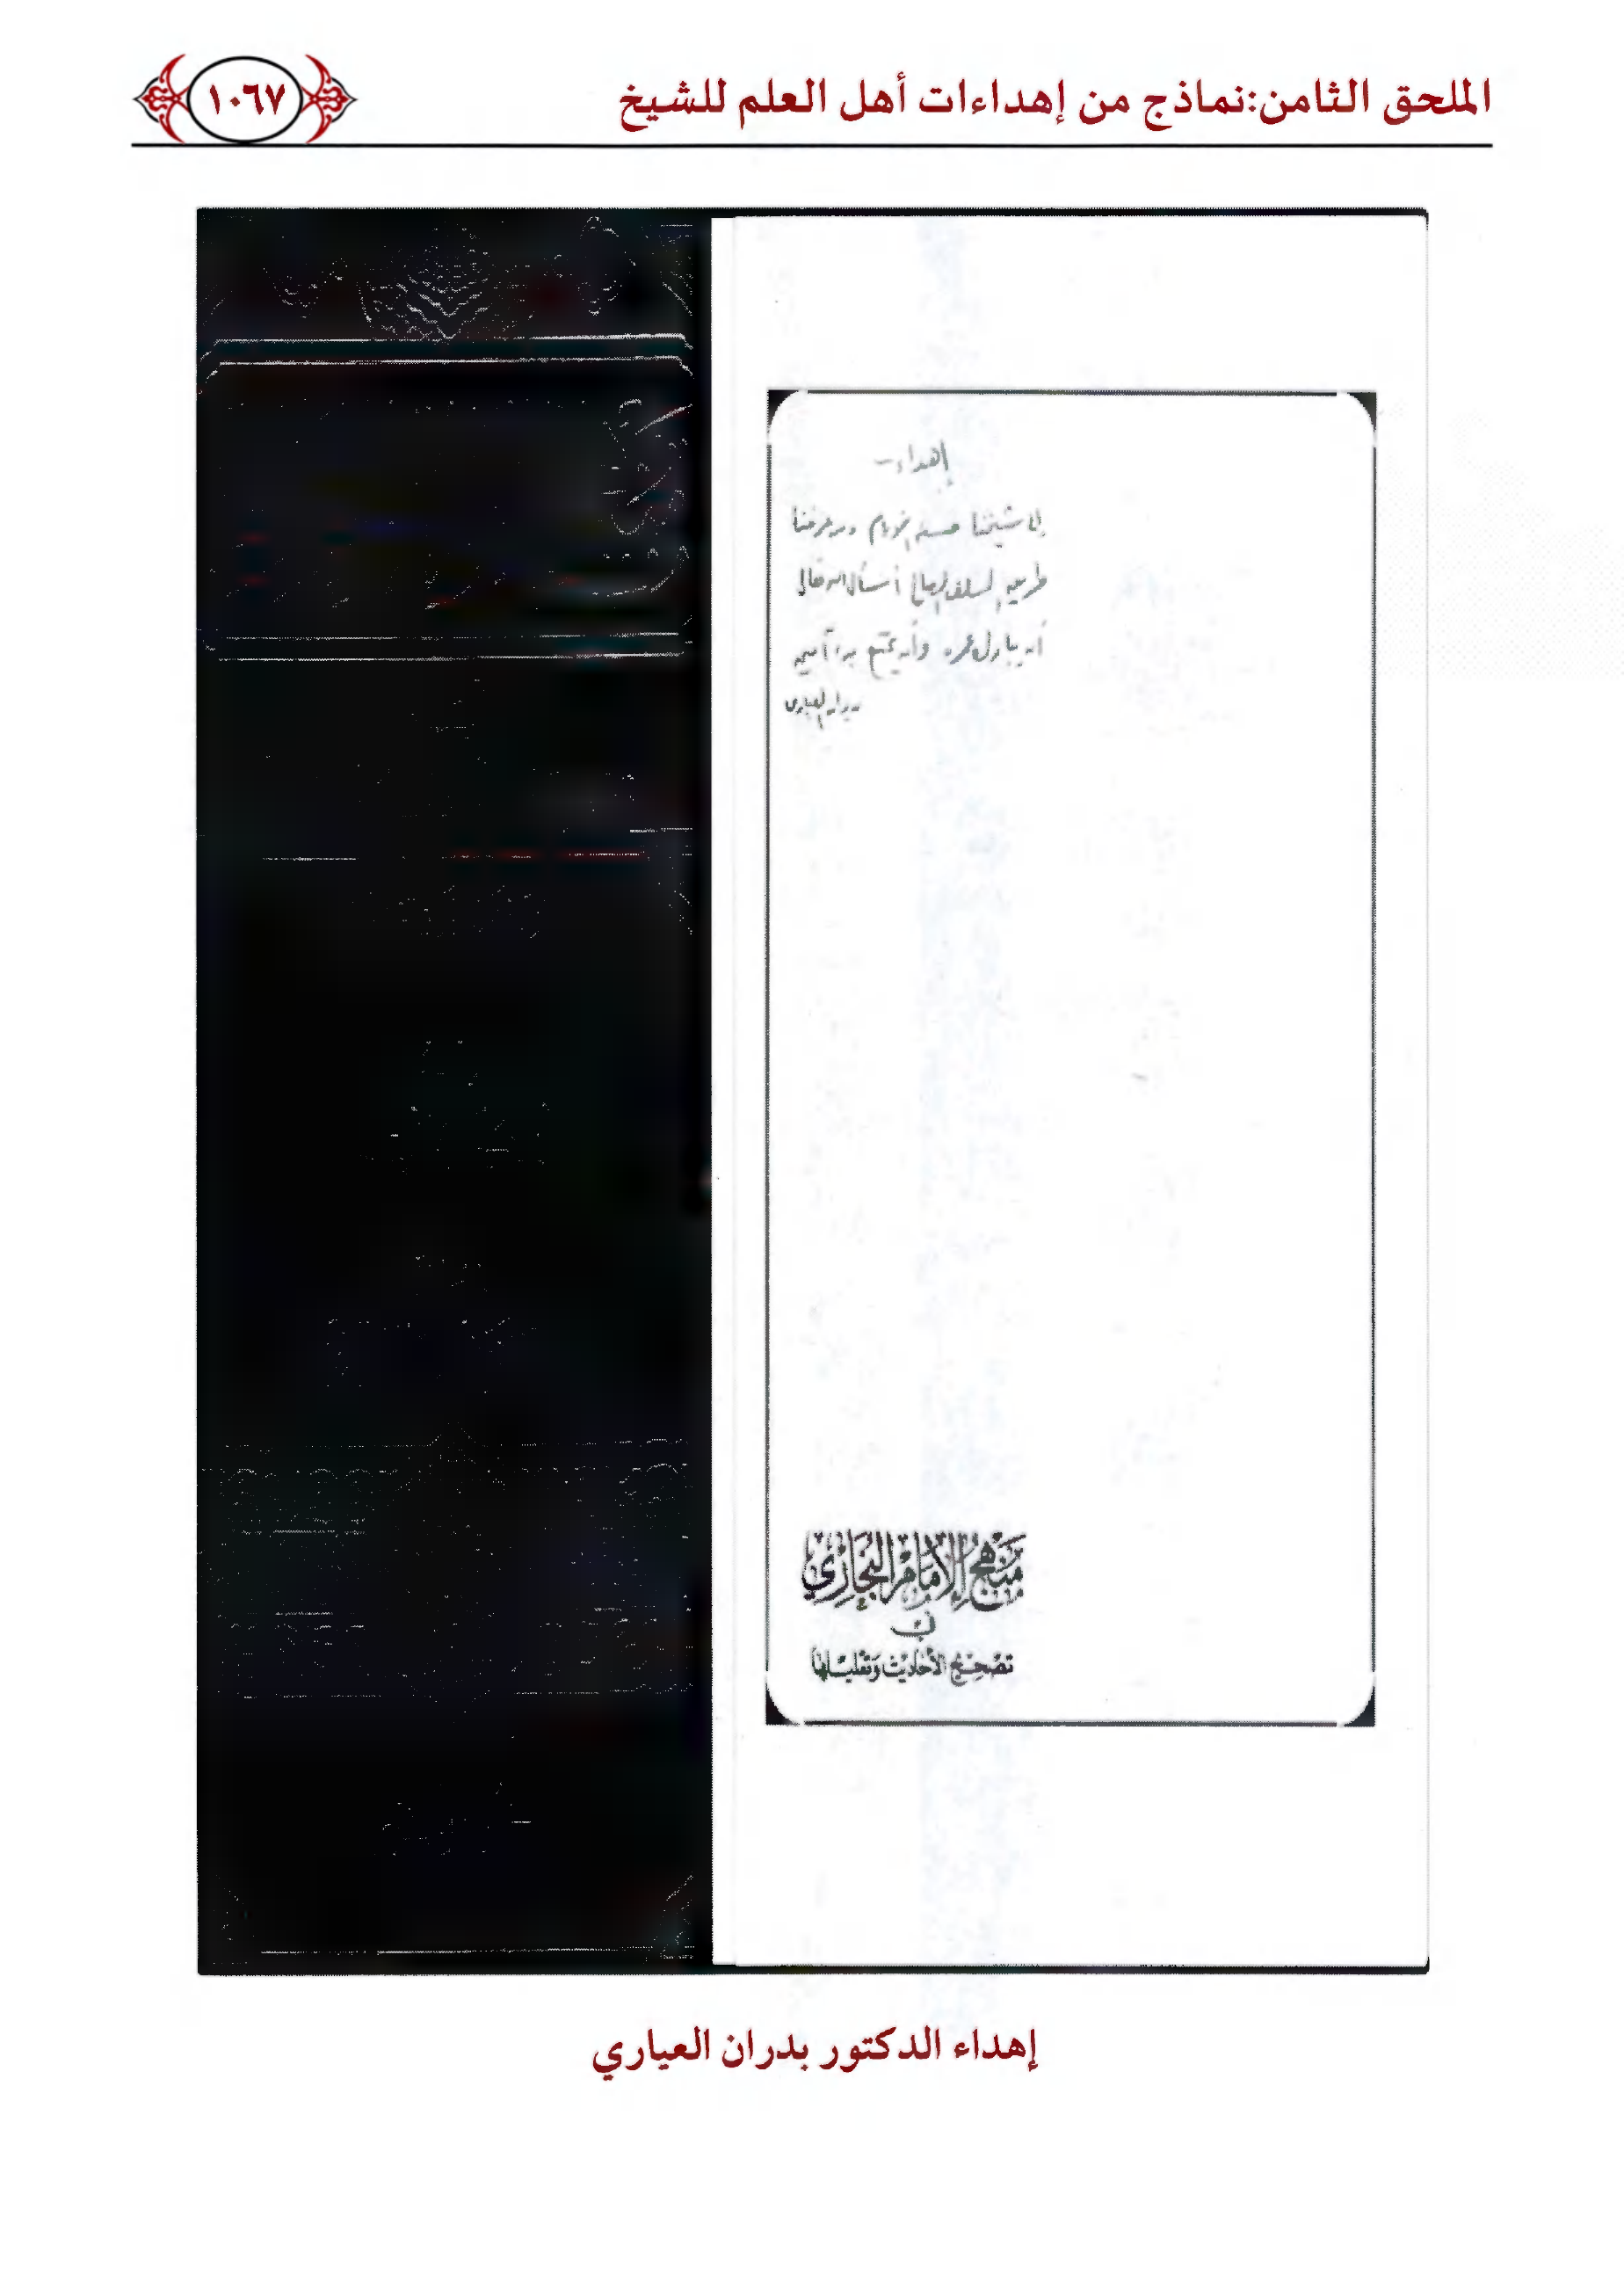 الملحق الثامن:نماذج من إهداءات أهل العلم للشيخ
١٠٦٧
إهداء
إلى شيخنا ومن عرفنا
طريق السلف أسأل الله تعالى
أن يبارك في عمره وأن يمتع به آمين
بدران العياري
منهج الإمام البخاري
في
تصحيح الأحاديث وتعليلها
إهداء الدكتور بدران العياري